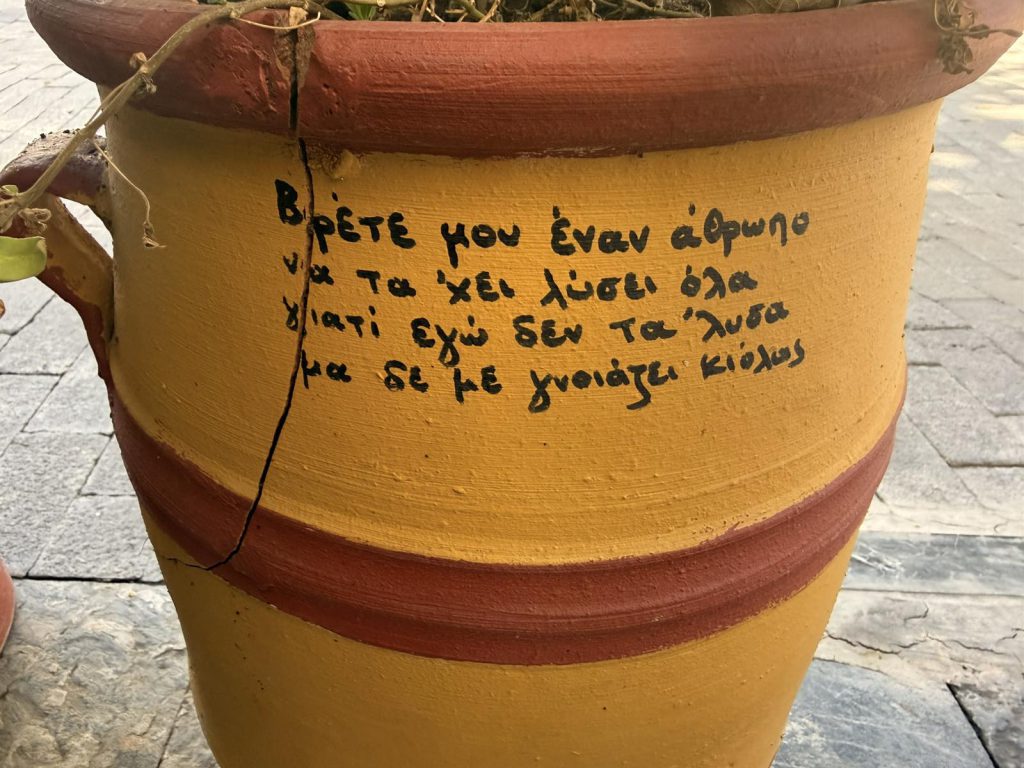 Βρέτε μου έναν άθρωπο
να τα 'χει λύσει όλα
γιατί εγώ δεν τα 'λυσα
μα δε με γνοιάζει κιόλας